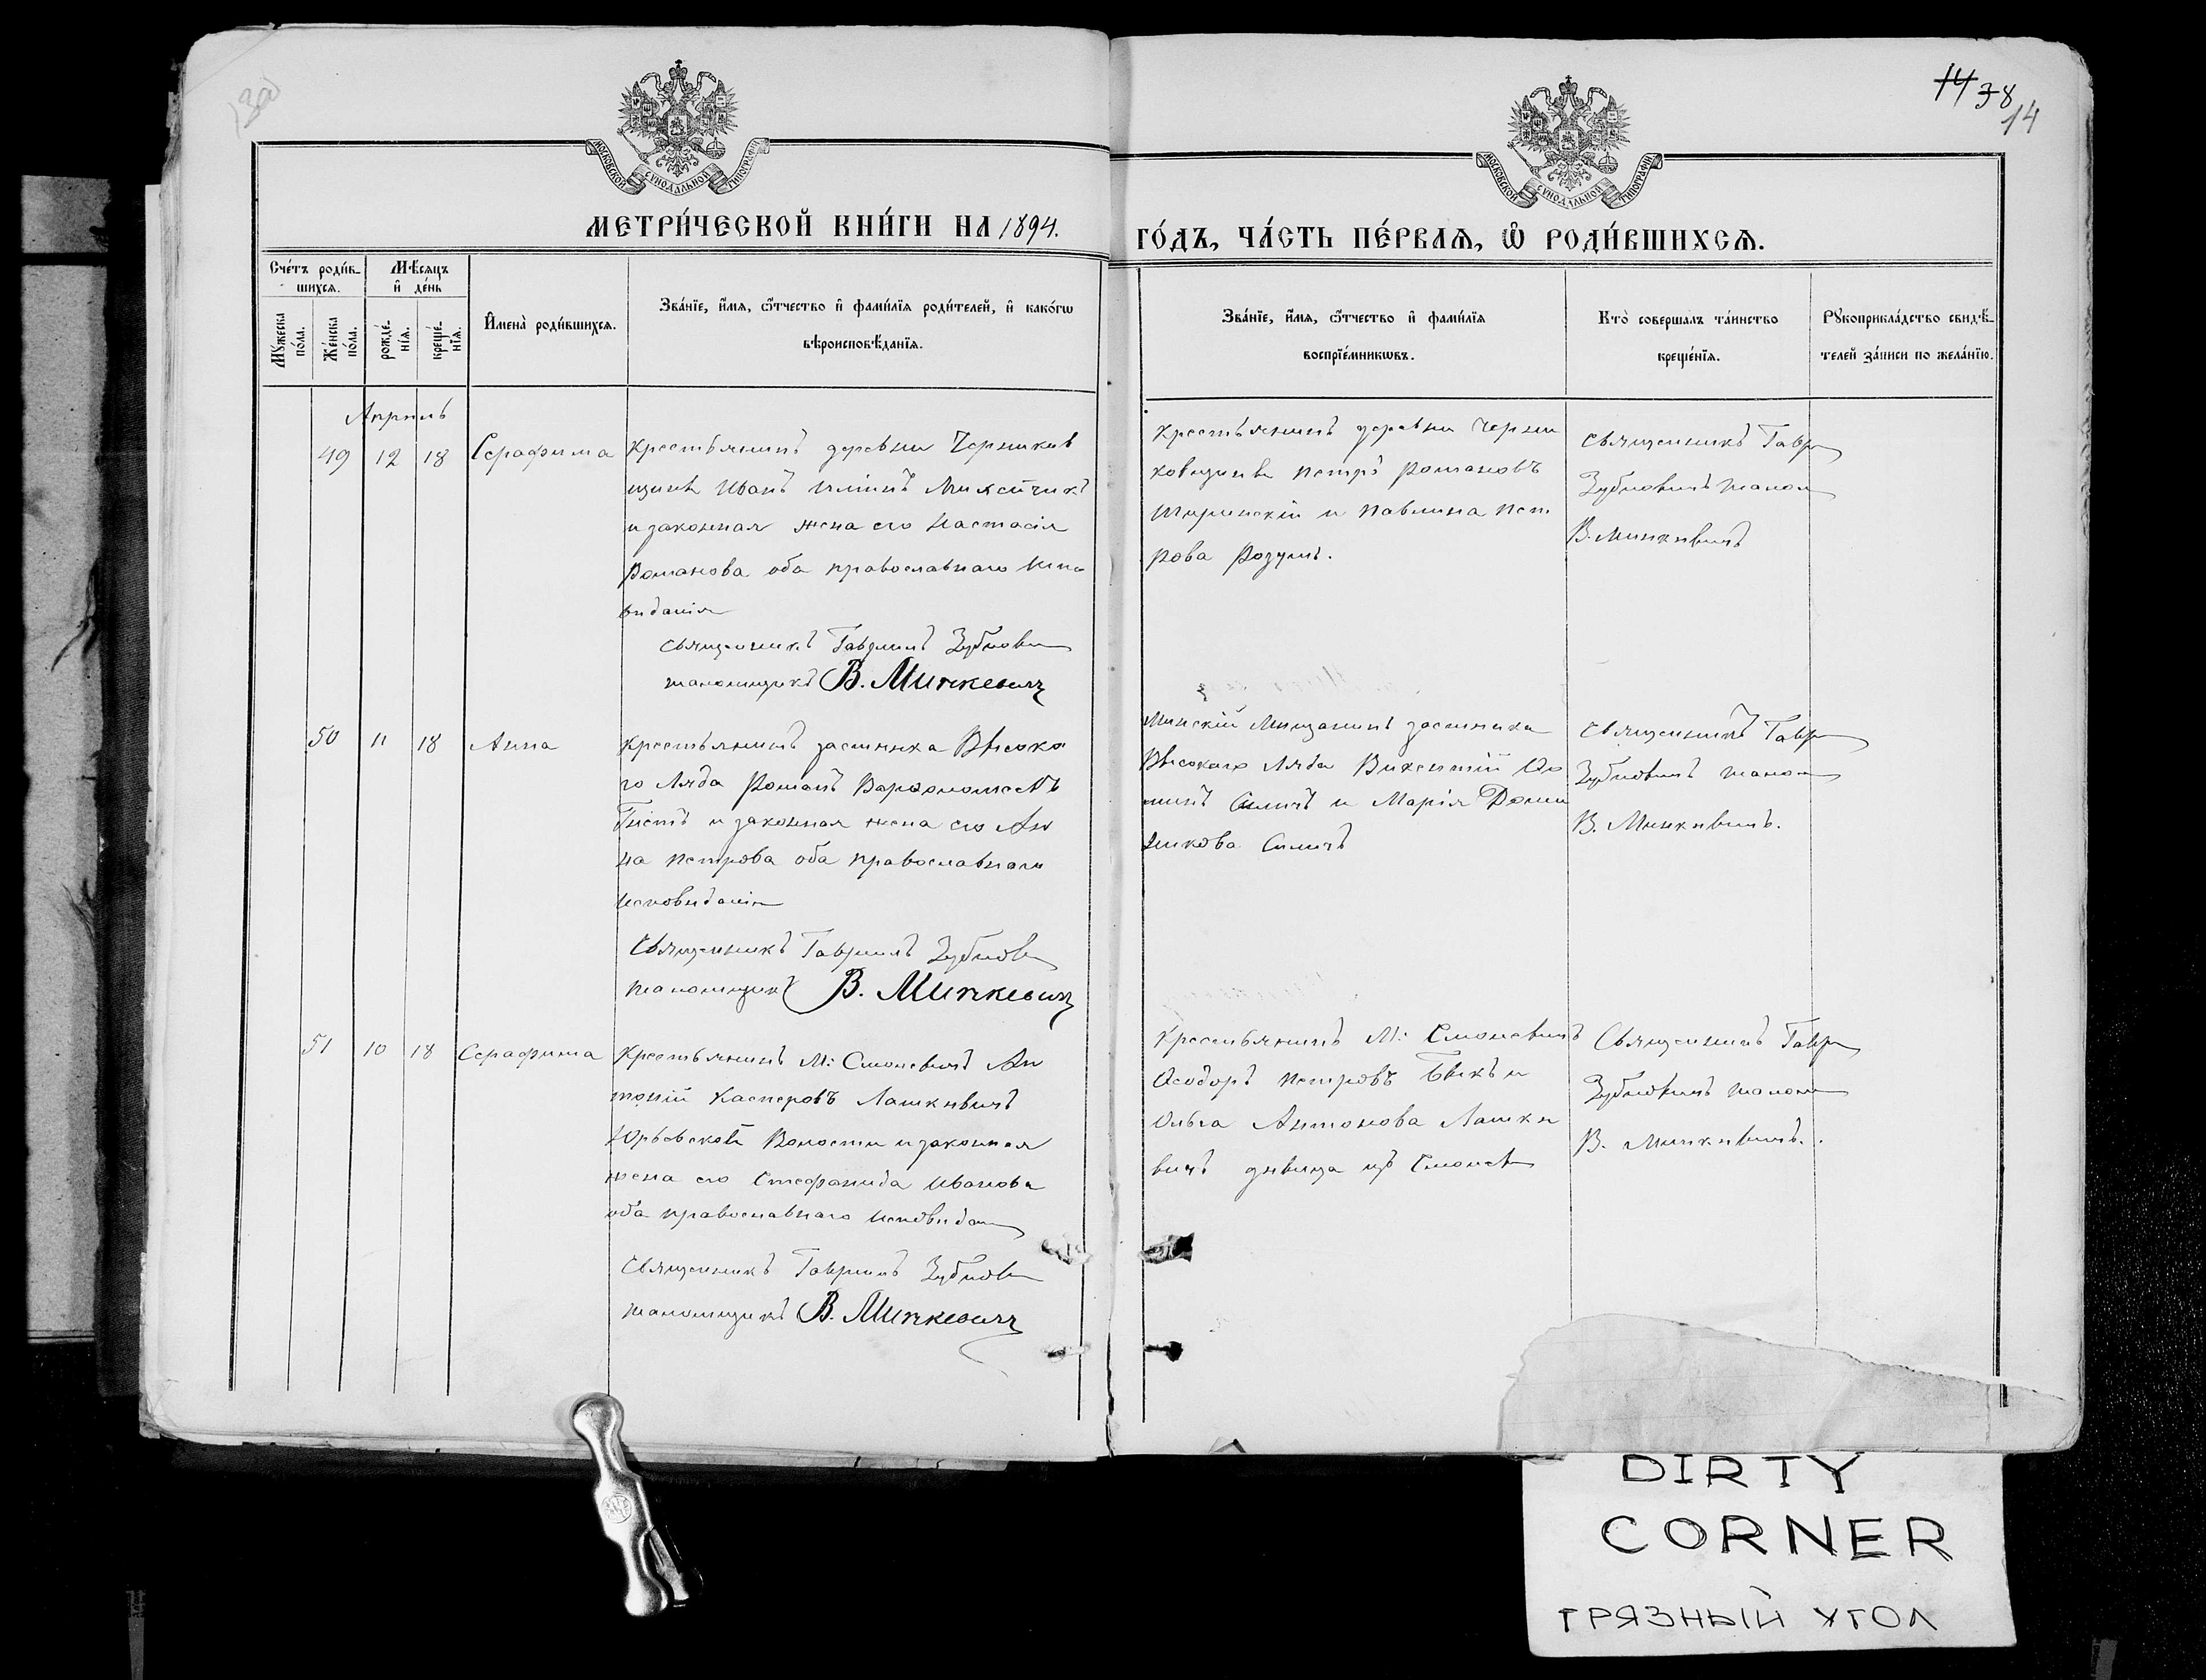 13об
14 38
14
МОСКОВСКОЙ СУНОДАЛЬНОЙ ТИПОГРАФІИ
МОСКОВСКОЙ СУНОДАЛЬНОЙ ТИПОГРАФІИ
МЕТРИ́ЧЕСКОЙ КНИ́ГИ НА 1894.
ГО́ДЪ, ЧА́СТЬ ПЕ́РВАѦ, Ѿ РОДИ́ВШИХСѦ.
Сче́тъ роди́в-
шихсѧ.
Мꙋ́жеска
по́ла.
Же́нска
по́ла.
Мѣ́сѧцъ
и҆ де́нь
рожде́-
нїѧ.
креще́-
нїѧ.
И҆мена̀ роди́вшихсѧ.
Зва́нїе, и҆́мѧ, ѻ҆́тчество и҆ фами́лїѧ роди́телей, и҆ како́гѡ
вѣроисповѣ́данїѧ.
Зва́нїе, и҆́мѧ, ѻ҆́тчество и҆ фами́лїѧ
воспрїе́мникѡвъ.
Кто̀ соверша́лъ та́инство
креще́нїѧ.
Рꙋкоприкла́дство свидѣ́-
телей за́писи по жела́нїю.
Апрѣль
49 12 18 Серафима
Крестьянинъ деревни Черников
щины Иванъ Ильинъ Михейчикъ
и законная жена его Настасія
Романова оба православнаго испо
вѣданія
Священникъ Гавріилъ Зубков
Псаломщикъ В. Мичкевичъ
Крестьянинъ деревни Черни
ковщины Петръ Романовъ
и Павлина Пет
рова Розумъ.
Священникъ Гавр
Псалом
В. Мичкевичъ
50 11 18 Анна
Крестьянинъ застѣнка Высока
го Ляда Романъ Варѳоломеевъ
и законная жена его Ан
на Петрова оба православнаго
исповѣданія
Священникъ Гавріилъ
Псаломщикъ В. Мичкевичъ
Минскій Мѣщанинъ застѣнка
Высокаго Ляда Викентій Ѳо
минъ Силичъ и Марія Доми
никова Силичъ
Священникъ Гавр
Псалом
В. Мичкевичъ.
51 10 18 Серафима
Крестьянинъ М: Смолевичъ Ан
тоній Касперовъ Лашкевичъ
Юрьевской Волости и законная
жена его Стефанида Иванова
оба православнаго исповѣдан
Священникъ Гавріилъ
Псаломщикъ В. Мичкевичъ
Крестьянинъ М: Смолевичъ
Ѳеодоръ Петровъ Быкъ и
Ольга Антонова Лашке
вичъ дѣвица изъ Смолев
Священникъ Гавр
Псалом
В. Мичкевичъ.
DIRTY
CORNER
ГРЯЗНЫЙ УГОЛ